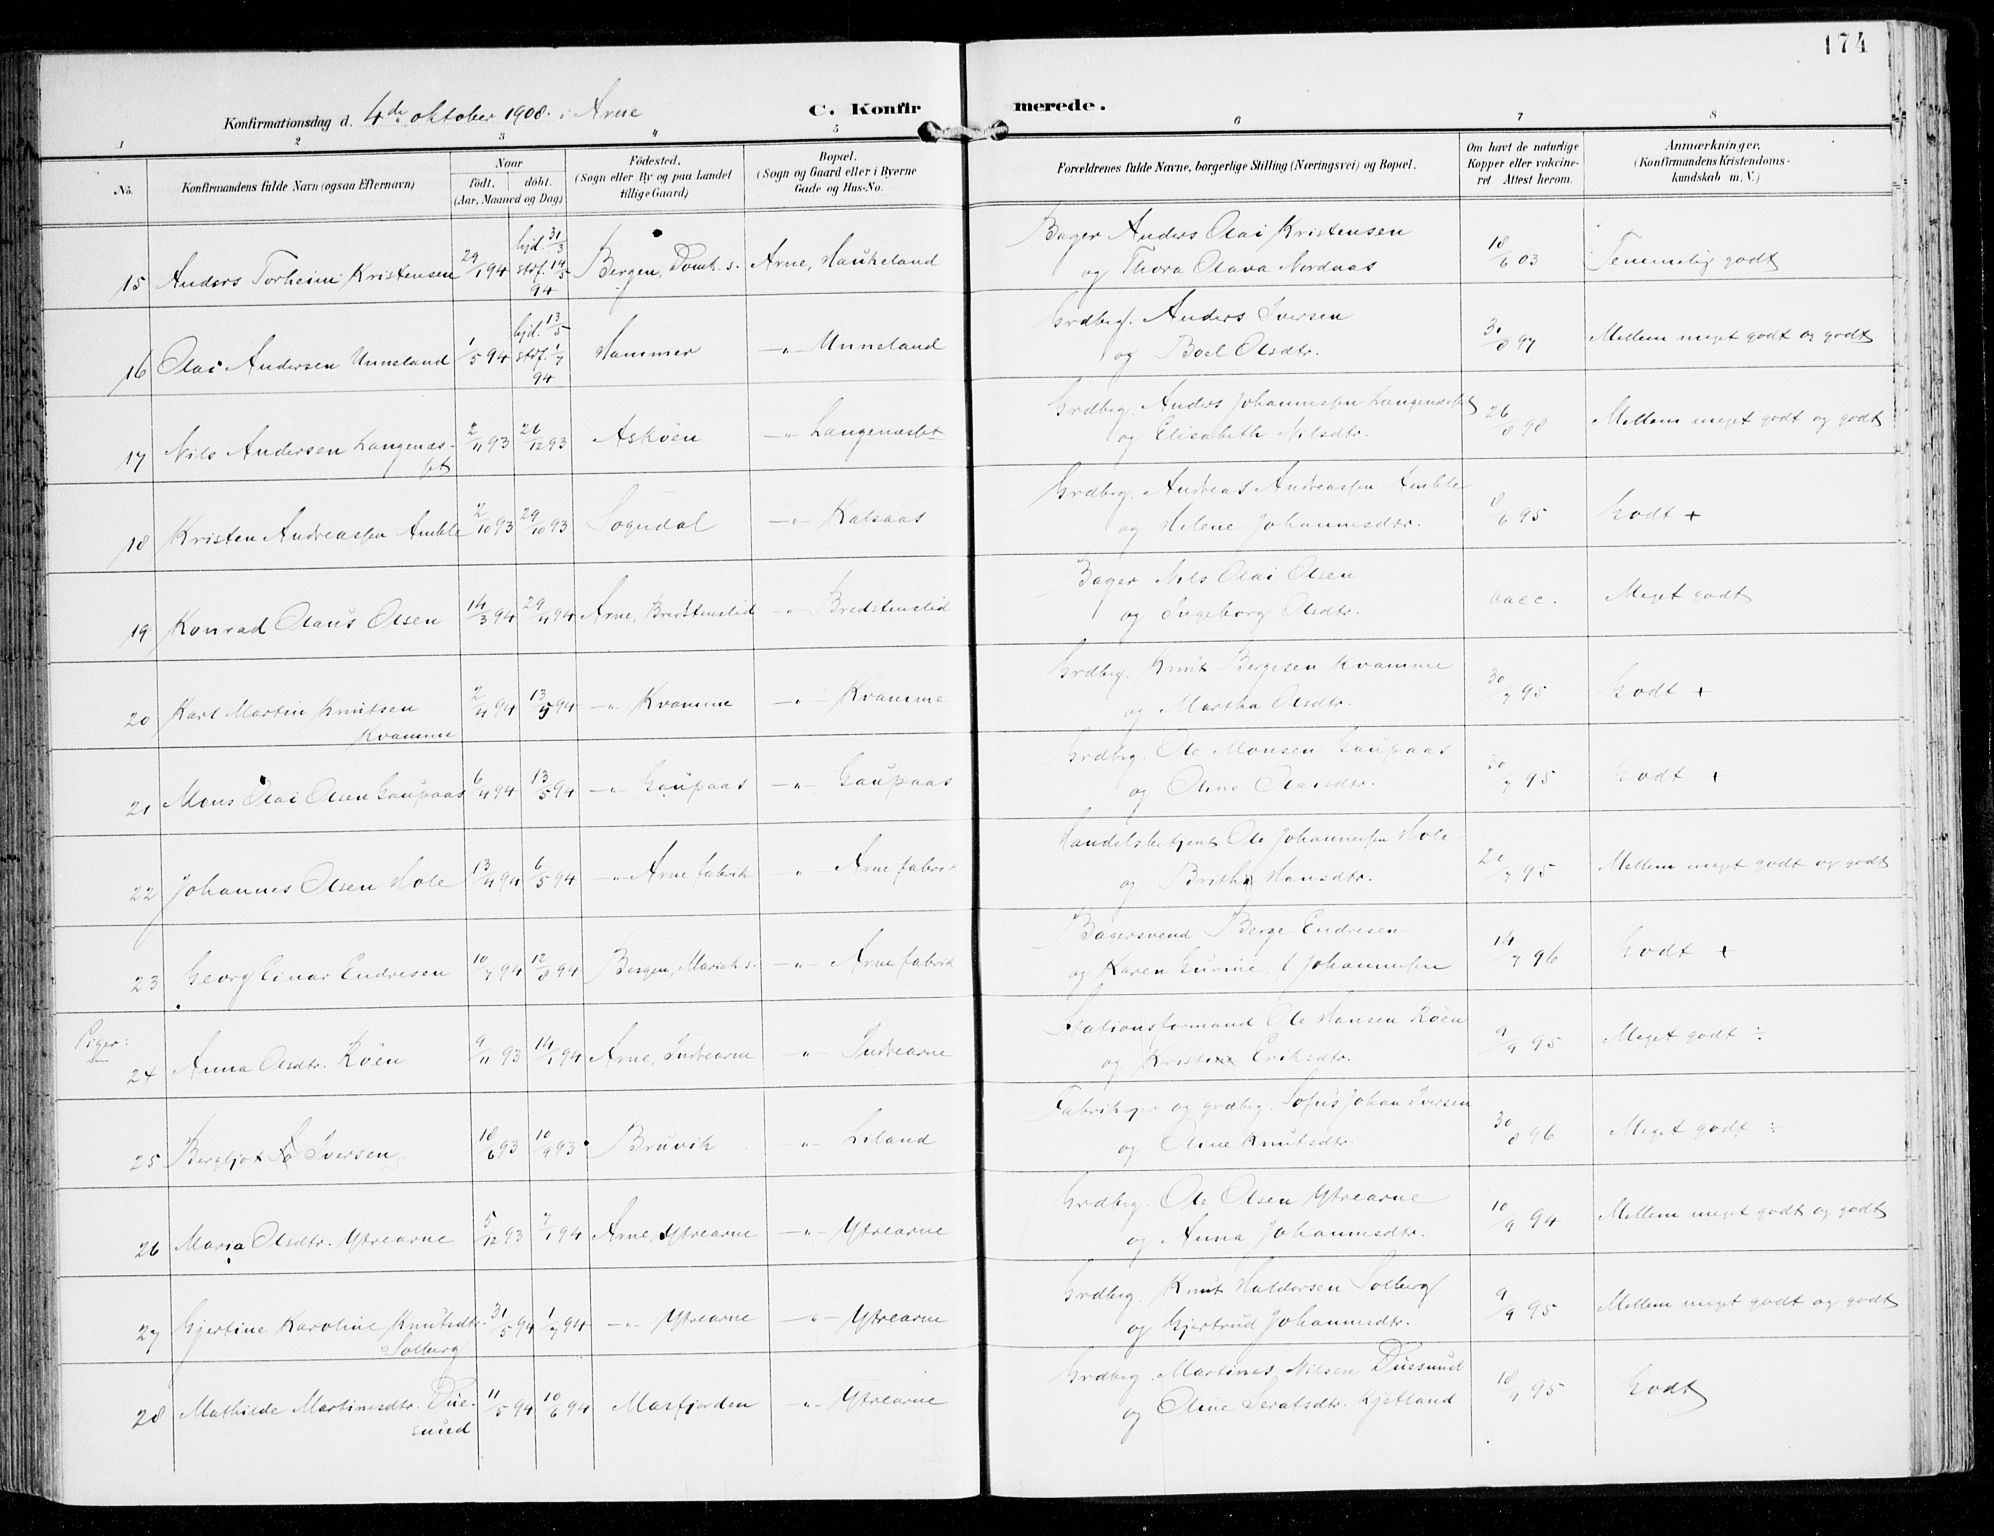 174
Konfirmationsdag d. 4de oktober 1908. i Arne C. Konfirmerede.
1 2 3 4 5 6 7 8
No. Konfirmandens fulde Navn (ogsaa Efternavn) Naar födt. döbt. (Aar, Maaned og Dag) Födested. (Sogn eller By og paa Landet tillige Gaard) Bopæl. (Sogn og Gaard eller i Byerne Gade og Hus-No. Forældrenes fulde Navne, borgerlige Stilling (Næringsvei) og Bopæl. Om havt de naturlige Kopper eller vakcineret. Attest herom. Anmærkninger. (Konfirmandens Kristendomskundskab m. V.)
15 Anders Torheim Kristensen 29/1 94 hjd. 31/3 stdf. 14/5 94 Bergen, Domk. s. Arne, Haukeland Bager Anders Olai Kristensen og Thora Olava Nordaas 18/6 03 Temmelig godt
16 Olai Andersen Unneland 1/5 94 hjd. 13/5 stdf. 1/7 94 Hammer -„- Unneland Grdbrg. Anders Iversen og Boel Olsdtr. 31/8 97 Mellem meget godt og godt
17 Nils Andersen Langenæsset 2/11 93 26/12 93 Askøen -„- Langenæsset Grdbrg. Anders Johannessen Langenæsset og Elisabeth Nilsdtr. 26/8 98 Mellem meget godt og godt
18 Kristen Andreassen Amble 2/10 93 29/10 93 Sogndal -„- Kalsaas Grdbrg. Andreas Andreassen Amble og Helene Johannesdtr. 18/6 95 Godt +
19 Konrad Olaus Olsen 14/3 94 29/4 94 Arne, Bredstenslid -„- Bredstenslid Bager Nils Olai Olsen og Ingeborg Olsdtr. vacc. Meget godt
20 Karl Martin Knutsen Kvamme 2/4 94 13/5 94 -„- Kvamme -„- Kvamme Grdbrg. Knut Bergesen Kvamme og Martha Olsdtr. 30/7 95 Godt +
21 Mons Olai Olsen Gaupaas 6/4 94 13/5 94 -„- Gaupaas -„- Gaupaas Grdbrg. Ole Monsen Gaupaas og Oline Olaisdtr. 30/7 95 Godt +
22 Johannes Olsen Hole 13/4 94 6/5 94 -„- Arne fabrik -„- Arne fabrik Handelsbetjent Ole Johannessen Hole og Britha Hansdtr. 20/7 95 Mellem meget godt og godt
23 Georg Einar Endresen 10/7 94 12/8 94 Bergen, Mariak. s. -„- Arne fabrik Bagersvend Berge Endresen og Karen Gurine, f. Johannessen 14/7 96 Godt +
Piger:
24 Anna Olsdtr. Röen 9/11 93 14/1 94 Arne, Indrearne -„- Indrearne Stationsformand Ole Hansen Röen og Kristine Eriksdtr. 9/9 95 Meget godt ÷
25 Bergljot Iversen 18/6 93 10/9 93 Bruvik -„- Liland Fabrikeier og grdbrg. Sofus Johan Iversen og Oline Knutsdtr. 30/8 96 Meget godt ÷
26 Maria Olsdtr. Ytrearne 5/12 93 7/1 94 Arne, Ytrearne -„- Ytrearne Grdbrg. Ole Olsen Ytrearne og Anna Johannesdtr. 10/9 94 Mellem meget godt og godt
27 Gjertine Karoline Knutsdtr. Solberg 31/5 94 1/7 94 -„- Ytrearne -„- Ytrearne Grdbrg. Knut Haldorsen Solberg og Gjertrud Johannesdtr. 9/9 95 Mellem meget godt og godt
28 Mathilde Martinesdtr. Duesund 11/5 94 10/6 94 Masfjorden -„- Ytrearne Grdbrg. Martines Nilsen Duesund og Oline Seratsdtr. Kjetland 18/7 95 Godt